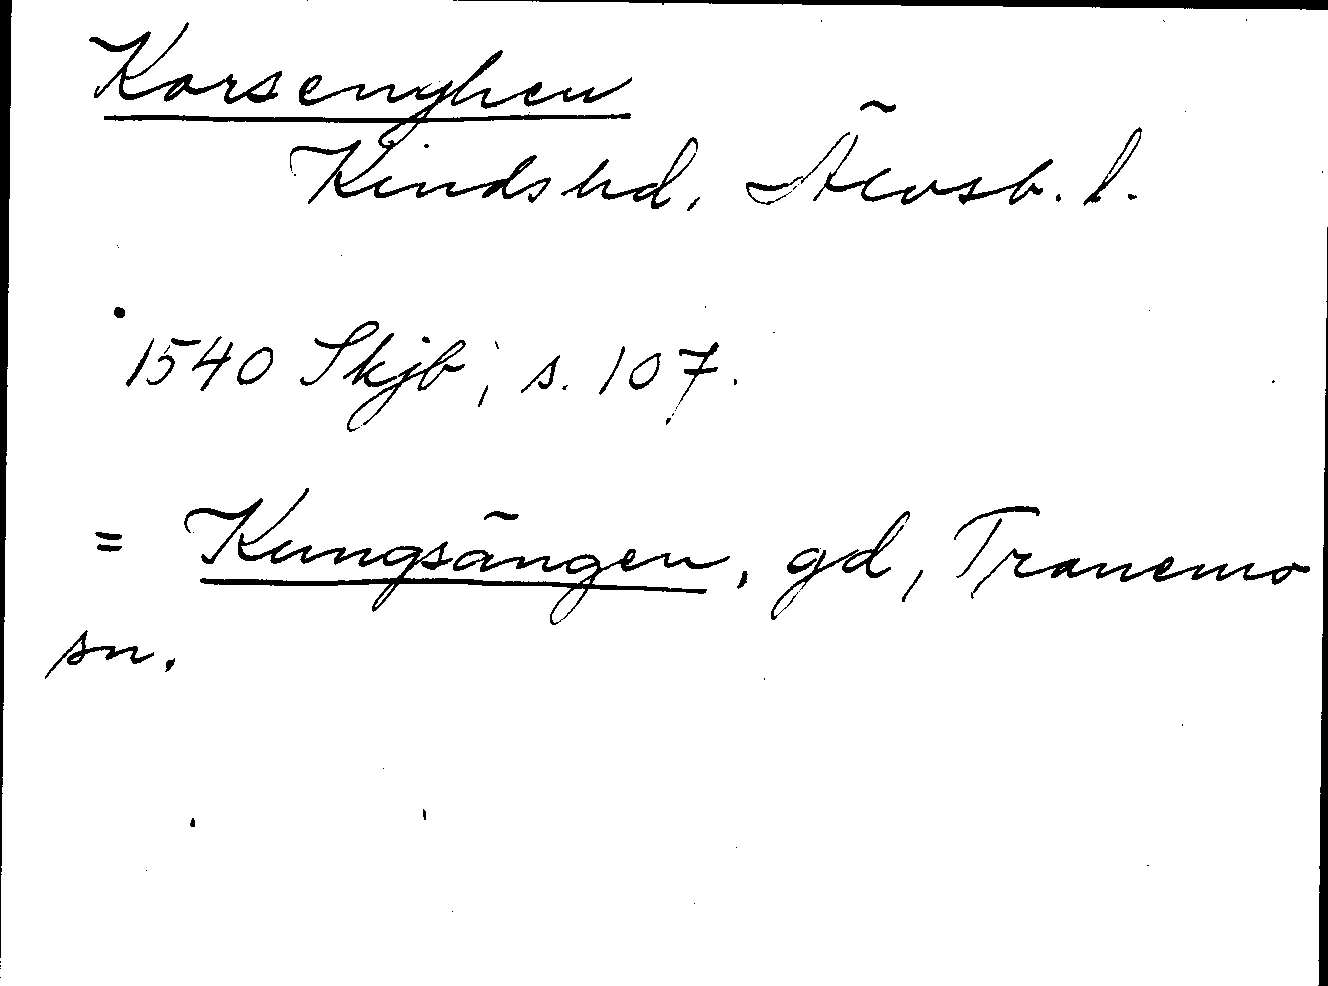 Korsenghen
Kinds hd, Älvsb. l.
1540 Skjb; s. 107.
= Kungsängen, gd, Tranemo
sn.